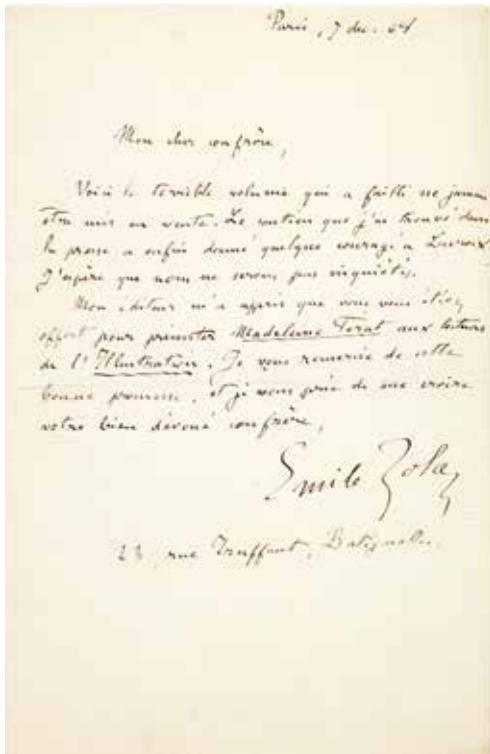 Paris, 7 dec. 68
Mon cher confrère,
Voici le terrible volume qui a failli ne jamais
être mis en vente. Le soutien que j'ai trouvé dans
la presse a enfin donné quelque courage à Lacroix.
J'espère que nous ne serons pas inquiétés.
Mon éditeur m'a appris que vous vous étiez
offert pour présenter Madeleine Férat aux lecteurs
de l'Illustration. Je vous remercie de cette
bonne promesse, et je vous prie de me croire
votre bien dévoué confrère,
Emile Zola
23 rue Truffaut, Batignolles.